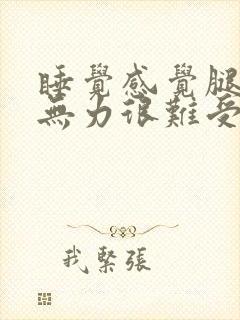 睡覺感覺腿
無力很難受
我緊張